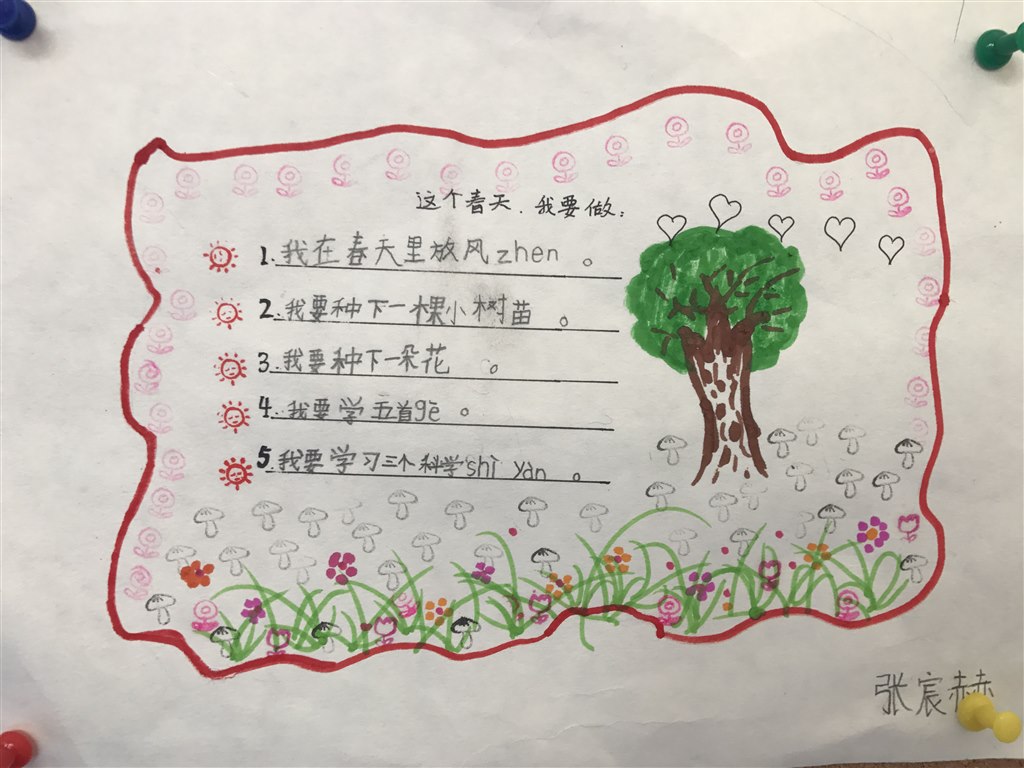 这个春天，我要做：
1.我在春天里放风zhen。
2.我要种下一棵小树苗。
3.我要种下一朵花。
4.我要学五首gē。
5.我要学习三个科学shì yàn。
张宸赫